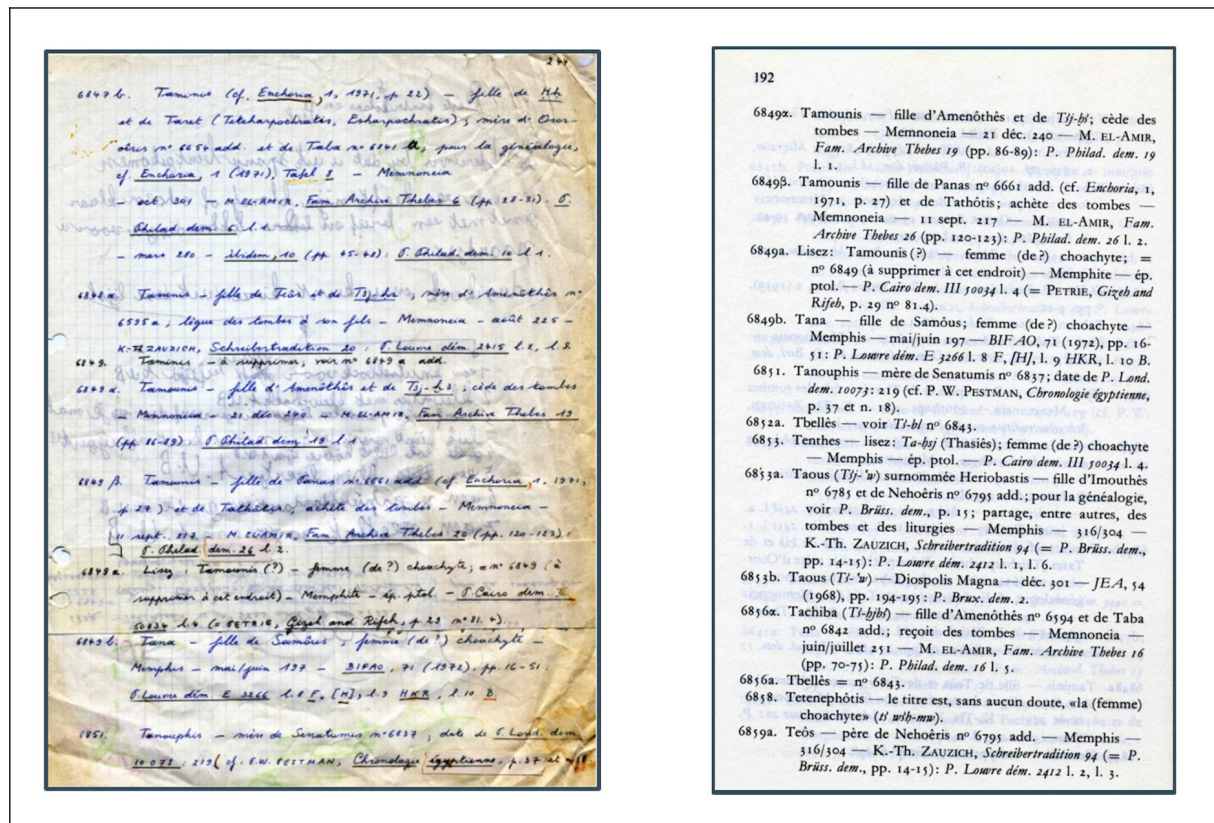 241
6847 b. Taminis (cf. Enchoria, 1, 1971, p. 22) – fille de
et de Taret (Teteharpochrates, Esharpochratis); mère d'Osor-
oêris nº 6654 add. et de Taba nº 6841 a; pour la généalogie,
cf. Enchoria, 1 (1971), Tafel 8 – Memnoneia
– oct. 301 – M. EL-AMIR, Fam. Archive Thebes 6 (pp. 28-31): P.
Philad. dem. 6 l. 1.
– mars 280 – ibidem, 10 (pp. 45-48): P. Philad. dem. 10 l. 1.
6848 a. Taminis – fille de Teôs et de Tsj-ḥr, mère d'Amenôthês nº
6595 a, lègue des tombes à son fils – Memnoneia – août 225 –
K.-Th. ZAUZICH, Schreibertradition 20: P. Louvre dém. 2415 l. 2, l. 3.
6849. Taminis – à supprimer, voir nº 6849 a add.
6849 α. Tamounis – fille d'Amenôthês et de Tsj-ḥs; cède des tombes
– Memnoneia – 21 déc. 240 – M. EL-AMIR, Fam. Archive Thebes 19
(pp. 86-89): P. Philad. dem. 19 l. 1.
6849 β. Tamounis – fille de Panas nº 6661 add. (cf. Enchoria, 1, 1971,
p. 27) et de Tathôtis; achète des tombes – Memnoneia –
11 sept. 217 – M. EL-AMIR, Fam. Archive Thebes 26 (pp. 120-123):
P. Philad. dem. 26 l. 2.
6849 a. Lisez: Tamounis (?) – femme (de?) choachyte; = nº 6849 (à
supprimer à cet endroit) – Memphite – ép. ptol. – P. Cairo dem. III
50034 l. 4 (= PETRIE, Gizeh and Rifeh, p. 29 nº 81.4).
6849 b. Tana – fille de Samôus; femme (de?) choachyte –
Memphis – mai/juin 197 – BIFAO, 71 (1972), pp. 16-51:
P. Louvre dém. E 3266 l. 8 F, [H], l. 9 HKR, l. 10 B.
6851. Tanouphis – mère de Senatumis nº 6837; date de P. Lond. dem.
10073: 219 (cf. P.W. PESTMAN, Chronologie égyptienne, p. 37 et n. 18
192
6849α. Tamounis — fille d'Amenôthês et de Tšj-ḥš; cède des
tombes — Memnoneia — 21 déc. 240 — M. EL-AMIR,
Fam. Archive Thebes 19 (pp. 86-89): P. Philad. dem. 19
l. 1.
6849β. Tamounis — fille de Panas nº 6661 add. (cf. Enchoria, 1,
1971, p. 27) et de Tathôtis; achète des tombes —
Memnoneia — 11 sept. 217 — M. EL-AMIR, Fam.
Archive Thebes 26 (pp. 120-123): P. Philad. dem. 26 l. 2.
6849a. Lisez: Tamounis (?) — femme (de?) choachyte; =
nº 6849 (à supprimer à cet endroit) — Memphite — ép.
ptol. — P. Cairo dem. III 50034 l. 4 (= PETRIE, Gizeh and
Rifeh, p. 29 nº 81.4).
6849b. Tana — fille de Samôus; femme (de?) choachyte —
Memphis — mai/juin 197 — BIFAO, 71 (1972), pp. 16-
51: P. Louvre dém. E 3266 l. 8 F, [H], l. 9 HKR, l. 10 B.
6851. Tanouphis — mère de Senatumis nº 6837; date de P. Lond.
dem. 10073: 219 (cf. P. W. PESTMAN, Chronologie égyptienne,
p. 37 et n. 18).
6852a. Tbellês — voir Tš-bl nº 6843.
6853. Tenthes — lisez: Ta-ḥsj (Thasiês); femme (de?) choachyte
— Memphis — ép. ptol. — P. Cairo dem. III 50034 l. 4.
6853a. Taous (Tšj-'w) surnommée Heriobastis — fille d'Imouthês
nº 6785 et de Nehoêris nº 6795 add.; pour la généalogie,
voir P. Brüss. dem., p. 15; partage, entre autres, des
tombes et des liturgies — Memphis — 316/304 —
K.-Th. ZAUZICH, Schreibertradition 94 (= P. Brüss. dem.,
pp. 14-15): P. Louvre dém. 2412 l. 1, l. 6.
6853b. Taous (Tš-'w) — Diospolis Magna — déc. 301 — JEA, 54
(1968), pp. 194-195: P. Brux. dem. 2.
6856α. Tachiba (Tš-hjbš) — fille d'Amenôthês nº 6594 et de Taba
nº 6842 add.; reçoit des tombes — Memnoneia —
juin/juillet 251 — M. EL-AMIR, Fam. Archive Thebes 16
(pp. 70-75): P. Philad. dem. 16 l. 5.
6856a. Tbellês = nº 6843.
6858. Tetenephôtis — le titre est, sans aucun doute, «la (femme)
choachyte» (tš wšḥ-mw).
6859a. Teôs — père de Nehoêris nº 6795 add. — Memphis —
316/304 — K.-Th. ZAUZICH, Schreibertradition 94 (= P.
Brüss. dem., pp. 14-15): P. Louvre dém. 2412 l. 2, l. 3.